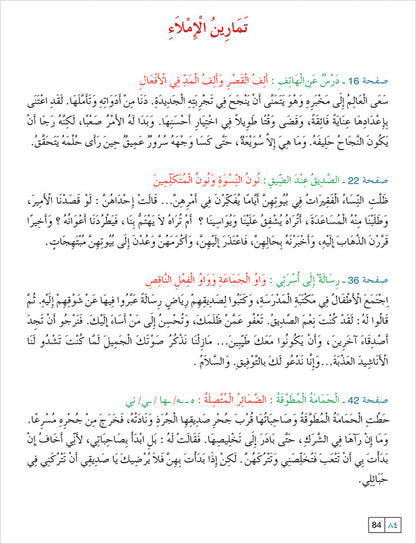 تَمَارِينُ الْإِمْلَاءِ
صفحة 16 ـ دَرْسٌ عَنِ الْهَاتِفِ : أَلِفُ الْقَصْرِ وَأَلِفُ الْمَدِّ فِي الْأَفْعَالِ
سَعَى الْعَالِمُ إِلَى مَخْبَرِهِ وَهُوَ يَتَمَنَّى أَنْ يَنْجَحَ فِي تَجْرِبَتِهِ الْجَدِيدَةِ. دَنَا مِنْ أَدَوَاتِهِ وَتَأَمَّلَهَا. لَقَدِ اعْتَنَى
بِإِعْدَادِهَا عِنَايَةً فَائِقَةً، وَقَضَى وَقْتًا طَوِيلًا فِي اخْتِيَارِ أَحْسَنِهَا. وَبَدَا لَهُ الْأَمْرُ صَعْبًا، لَكِنَّهُ رَجَا أَنْ
يَكُونَ النَّجَاحُ حَلِيفَهُ. وَمَا هِيَ إِلَّا سُوَيْعَةٌ، حَتَّى كَسَا وَجْهَهُ سُرُورٌ عَمِيقٌ حِينَ رَأَى حُلْمَهُ يَتَحَقَّقُ.
صفحة 22 ـ الصَّدِيقُ عِنْدَ الضِّيقِ: نُونُ النِّسْوَةِ وَنُونُ الْمُتَكَلِّمِينَ
ظَلَّتِ النِّسَاءُ الْفَقِيرَاتُ فِي بُيُوتِهِنَّ أَيَّامًا يُفَكِّرْنَ فِي أَمْرِهِنَّ... قَالَتْ إِحْدَاهُنَّ : لَوْ قَصَدْنَا الْأَمِيرَ،
وَطَلَبْنَا مِنْهُ الْمُسَاعَدَةَ، أَتُرَاهُ يُشْفِقُ عَلَيْنَا وَيُوَاسِينَا ؟ أَمْ تُرَاهُ لَا يَهْتَمُّ بِنَا، فَيَطْرُدُنَا أَعْوَانُهُ ؟ وَأَخِيرًا
قَرَّرْنَ الذَّهَابَ إِلَيْهِ، وَأَخْبَرْنَهُ بِحَالِهِنَّ، فَاعْتَذَرَ إِلَيْهِنَّ، وَأَكْرَمَهُنَّ وَعُدْنَ إِلَى بُيُوتِهِنَّ مُبْتَهِجَاتٍ.
صفحة 36 ـ رِسَالَةٌ إِلَى أُسْرَتِي : وَاوُ الْجَمَاعَةِ وَوَاوُ الْفِعْلِ النَّاقِصِ
اِجْتَمَعَ الْأَطْفَالُ فِي مَكْتَبَةِ الْمَدْرَسَةِ، وَكَتَبُوا لِصَدِيقِهِمْ رِيَاضٍ رِسَالَةً عَبَّرُوا فِيهَا عَنْ شَوْقِهِمْ إِلَيْهِ. ثُمَّ
قَالُوا لَهُ : لَقَدْ كُنْتَ نِعْمَ الصَّدِيقُ. تَعْفُو عَمَّنْ ظَلَمَكَ، وَتُحْسِنُ إِلَى مَنْ أَسَاءَ إِلَيْكَ. فَنَرْجُو أَنْ تَجِدَ
أَصْدِقَاءَ آخَرِينَ، وَأَنْ يَكُونُوا مَعَكَ طَيِّبِينَ... مَازِلْنَا نَذْكُرُ صَوْتَكَ الْجَمِيلَ لَمَّا كُنْتَ تَشْدُو لَنَا
الْأَنَاشِيدَ الْعَذْبَةَ...وَإِنَّا نَدْعُو لَكَ بِالتَّوْفِيقِ. وَالسَّلَامُ.
صفحة 42 ـ الْحَمَامَةُ الْمُطَوَّقَةُ : الضَّمَائِرُ الْمُتَّصِلَةُ : ـه/ ـها / ـي/ ني
حَطَّتِ الْحَمَامَةُ الْمُطَوَّقَةُ وَصَاحِبَاتُهَا قُرْبَ جُحْرِ صَدِيقِهَا الْجُرَذِ وَنَادَتْهُ، فَخَرَجَ مِنْ جُحْرِهِ مُسْرِعًا.
وَمَا إِنْ رَآهَا فِي الشَّرَكِ، حَتَّى بَادَرَ إِلَى تَخْلِيصِهَا. فَقَالَتْ لَهُ : بَلْ ابْدَأْ بِصَاحِبَاتِي، لِأَنِّي أَخَافُ إِنْ
بَدَأْتَ بِي أَنْ تَتْعَبَ فَتُخَلِّصَنِي وَتَتْرُكَهُنَّ. لَكِنْ إِذَا بَدَأْتَ بِهِنَّ فَلَا يُرْضِيكَ يَا صَدِيقِي أَنْ تَتْرُكَنِي فِي
حَبَائِلِي.
84 ٨٤